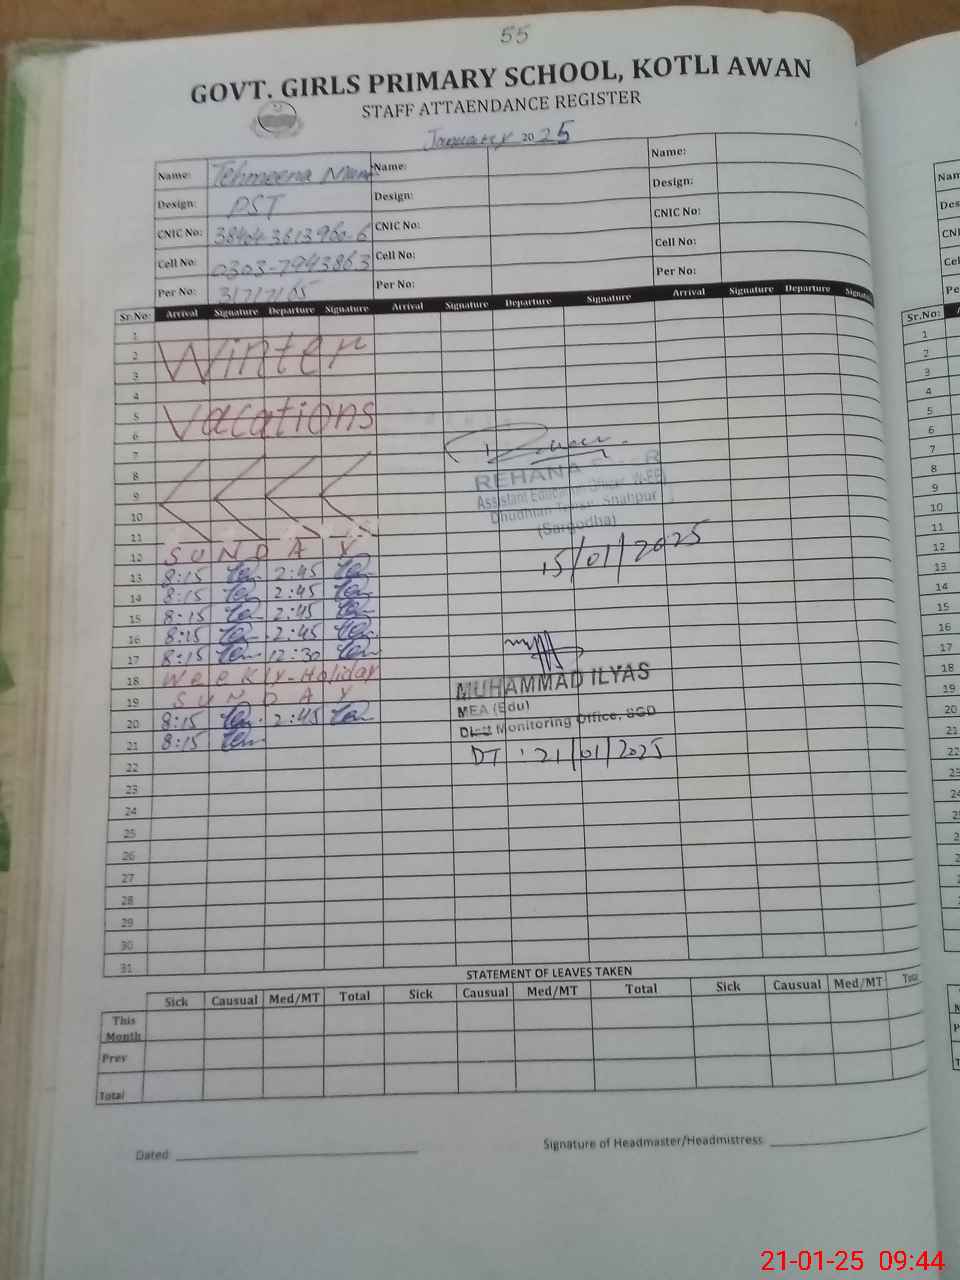 55
GOVT. GIRLS PRIMARY SCHOOL, KOTLI AWAN
STAFF ATTAENDANCE REGISTER
January 2025
Name: Tehmeena Name: Name:
Design: PST Design: Design:
CNIC No: CNIC No: CNIC No:
Cell No: 0303-7943863 Cell No: Cell No:
Per No: 31717165 Per No: Per No:
Sr.No: Arrival Signature Departure Signature Arrival Signature Departure Signature Arrival Signature Departure
1
2 Winter
3
4
5 Vacations
6
7
8
9
10
11
12 SUNDAY
13 8:15 2:45
14 8:15 2:45
15 8:15 2:45
16 8:15 2:45
17 8:15 12:30
18 Weekly-Holiday
19 SUNDAY
20 8:15 2:45
21 8:15
22
23
24
25
26
27
28
29
30
31
REHANA
Assistant Education Officer
Shahpur
(Sargodha)
15/01/2025
MUHAMMAD ILYAS
MEA (Edu)
Distt Monitoring Office, SGD
DT: 21/01/2025
STATEMENT OF LEAVES TAKEN
Sick Causual Med/MT Total Sick Causual Med/MT Total Sick Causual Med/MT
This Month
Prev
Total
Dated: Signature of Headmaster/Headmistress:
Sr.No:
1
2
3
4
5
6
7
8
9
10
11
12
13
14
15
16
17
18
19
20
21
22
21-01-25 09:44